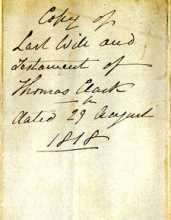 Copy of
Last Will and
Testament of
Thomas Clark
dated 29 August
1818